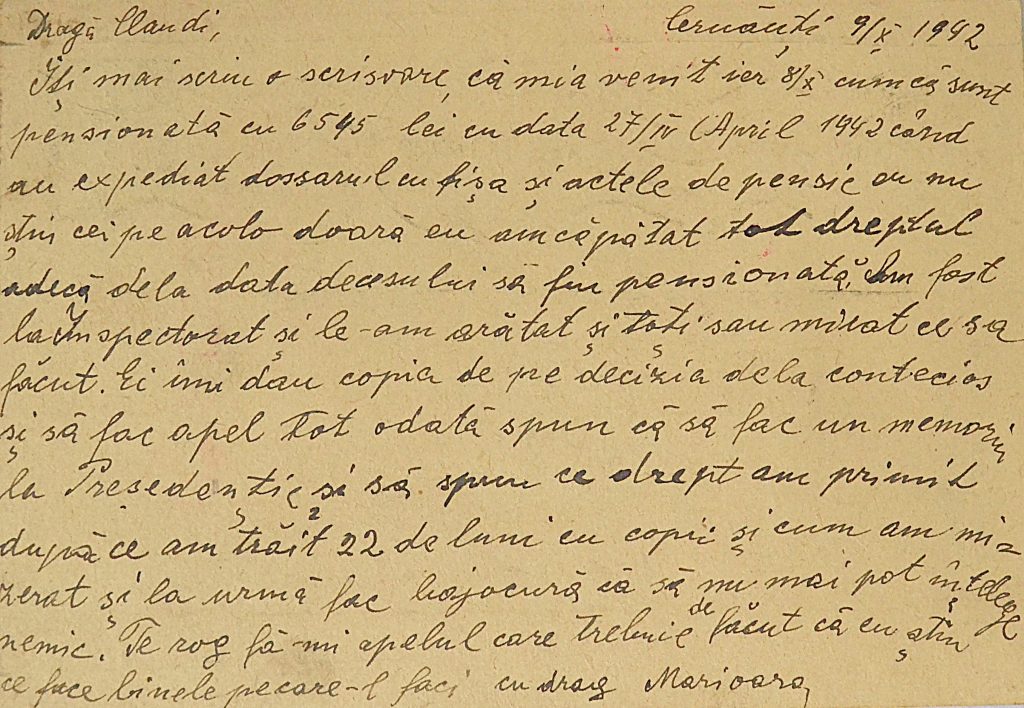 Dragă Claudi, Cernăuți 9/X 1942
Iți mai scriu o scrisoare, că mia venit ier 8/X cumcă sunt
pensionată cu 6545 lei cu data 27/IV (April 1942 când
au expediat dossarul cu fișa și actele de pensie eu nu
știu cei pe acolo doară eu am căpătat tot dreptul
adecă dela data decesului să fiu pensionată. Am fost
la Inspectorat și le-am arătat și toți sau mirat ce sa
făcut. Ei îmi dau copia de pe decizia dela contecios
și să fac apel tot odată spun că să fac un memoriu
la Președenție și să spun ce drept am primit
după ce am trăit 22 de luni cu copii și cum am mi=
zerat și la urmă fac bajocură că să nu mai pot înțelege
nemic. Te rog fă-mi apelul care trebuie de făcut că eu știu
ce face binele pecare-l faci cu drag Marioara